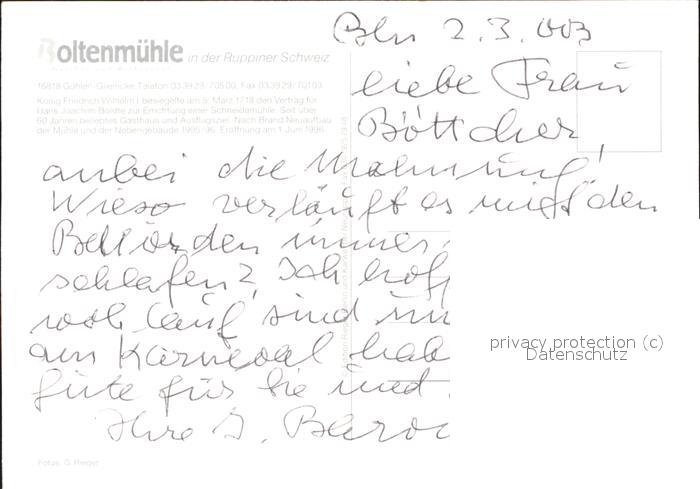 Boltenmühle in der Ruppiner Schweiz
16818 Gühlen-Glienicke, Telefon 033929/70500, Fax 033929/70103
König Friedrich Wilhelm I. besiegelte am 9. März 1718 den Vertrag für
Hans Joachim Boldte zur Errichtung einer Schneidemühle. Seit über
60 Jahren beliebtes Gasthaus und Ausflugsziel. Nach Brand Neuaufbau
der Mühle und der Nebengebäude 1995/96. Eröffnung am 1. Juni 1996.
Bln 2.3.003
liebe Frau
Böttcher,
anbei die Mahnung!
Wieso verläuft es mit den
Behörden immer
schlafen? Ich hoff
sind
am Karneval hab
gute für Sie und
Ihre I.
privacy protection (c)
Datenschutz
Fotos: G. Rieger